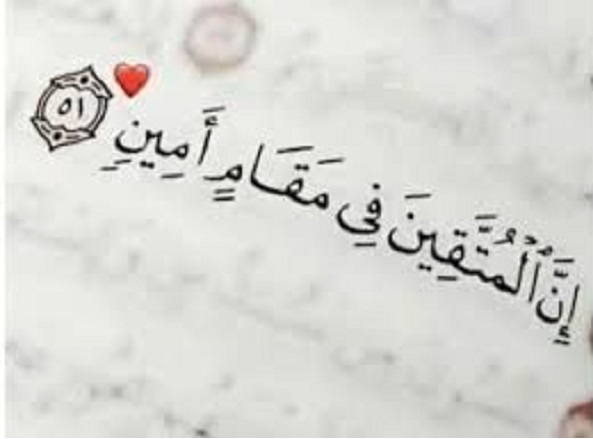 إِنَّ ٱلْمُتَّقِينَ فِي مَقَامٍ أَمِينٖ ٥١